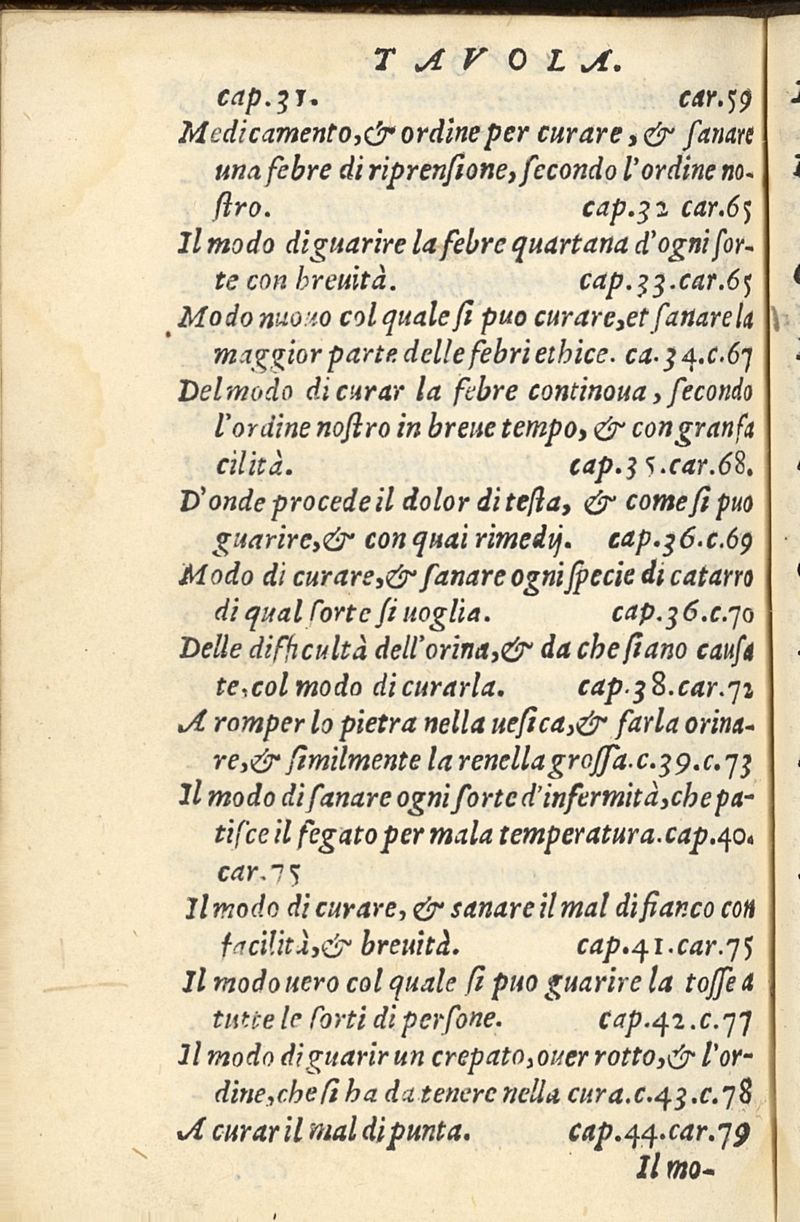 TAVOLA.
cap.31. car.59
Medicamento,& ordine per curare, & ſanare
una febre di riprenſione, ſecondo l'ordine no-
ſtro. cap.32 car.65
Il modo di guarire la febre quartana d'ogni ſor-
te con breuità. cap.33.car.65
Modo nuouo col quale ſi puo curare,et ſanare la
maggior parte delle febri ethice. ca.34.c.67
Del modo di curar la febre continoua, ſecondo
l'ordine noſtro in breue tempo, & con gran fa
cilità. cap.35.car.68.
D'onde procede il dolor di teſta, & come ſi puo
guarire,& con quai rimedij. cap.36.c.69
Modo di curare,& ſanare ogni ſpecie di catarro
di qual ſorte ſi uoglia. cap.36.c.70
Delle difficultà dell'orina,& da che ſiano cauſa
te,col modo di curarla. cap.38.car.72
A romper lo pietra nella ueſica,& farla orina-
re,& ſimilmente la renella groſſa.c.39.c.73
Il modo di ſanare ogni ſorte d'infermità,che pa-
tiſce il fegato per mala temperatura.cap.40.
car.75
Il modo di curare, & sanare il mal di fianco con
facilità,& breuità. cap.41.car.75
Il modo uero col quale ſi puo guarire la toſſe a
tutte le ſorti di perſone. cap.42.c.77
Il modo di guarir un crepato,ouer rotto,& l'or-
dine,che ſi ha da tenere nella cura.c.43.c.78
A curar il mal di punta. cap.44.car.79
Il mo-